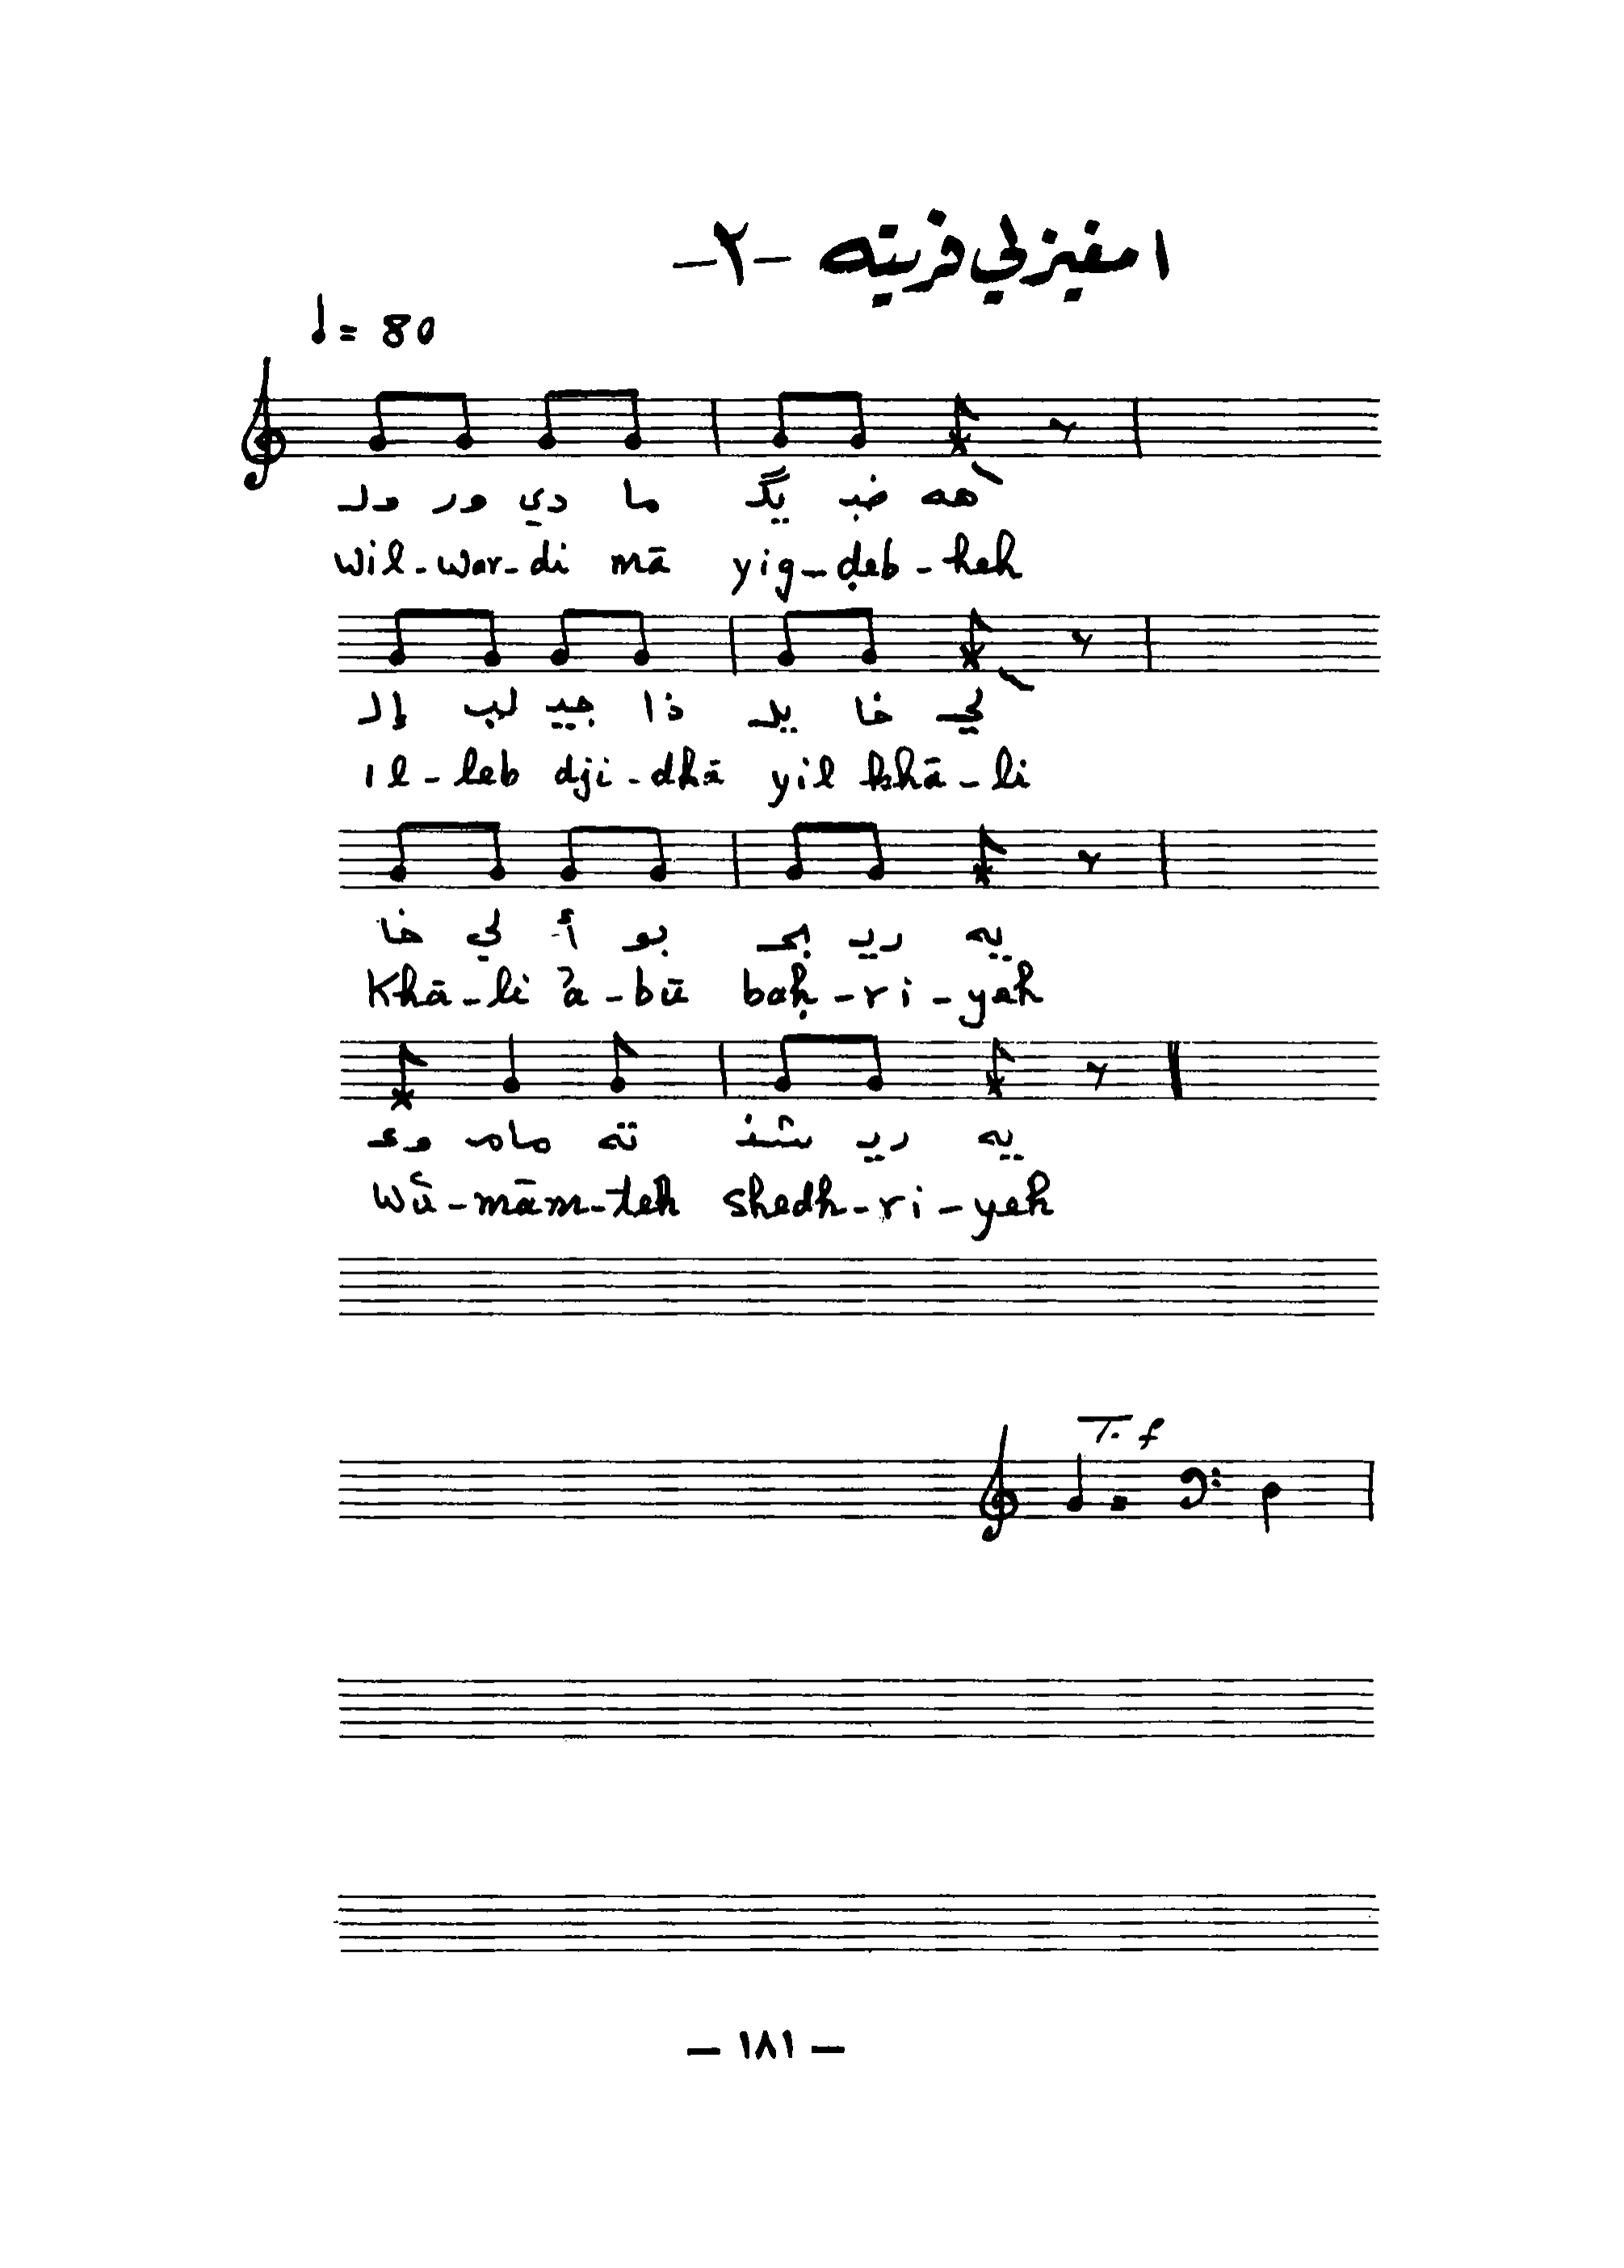 امفيزلي فزيته -٢-
= 80
ولـ ور دي ما يگـ ضبـ هه
wil-war-di mā yig-ḍeb-heh
إلـ لب جيـ ذا يلـ خا لي
il-leb dji-dhā yil khā-li
خا لي أ بو بحـ ريـ يه
Khā-li ʼa-bū baḥ-ri-yeh
مامـ ته شذ ريـ يه
wū-mām-teh shedh-ri-yeh
T. f
- ١٨١ -